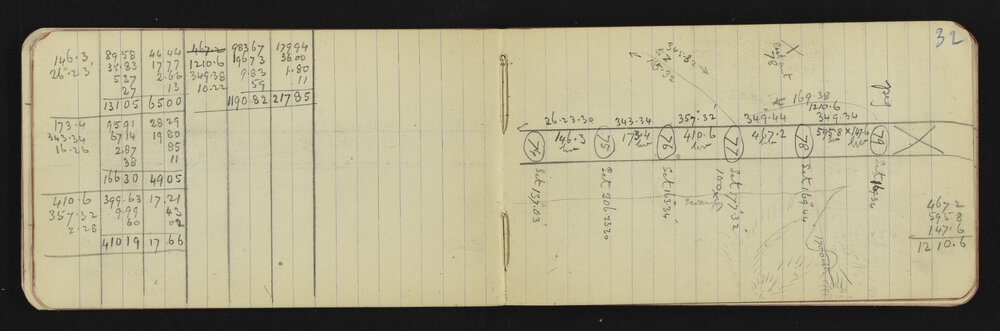 146.3 8958 44.44
26.23 35.83 17.77
5.37 2.66
27 13
131.05 65.00
173.4 95.91 28.29
343.34 67.14 19.80
16.26 2.87 85
38 11
166.30 49.05
410.6 399.63 17.21
357.32 9.99 43
2.28 60 02
410.19 17.66
467.2 983.67 179.94
1210.6 196.73 36.00
349.38 9.83 1.80
10.22 59 11
1190.82 217.85
32
X
345.82
169.38
1210.6
26.23.30 343.34 357.32 349.44 349.34
74 146.3 75 173.4 76 410.6 77 467.2 78 595.8 X 147.6 79
Set 137.03
Set 206.23.30
Set 163.34
Set 177.32
Set 169.44
Set 169.34
467.2
595.8
147.6
1210.6